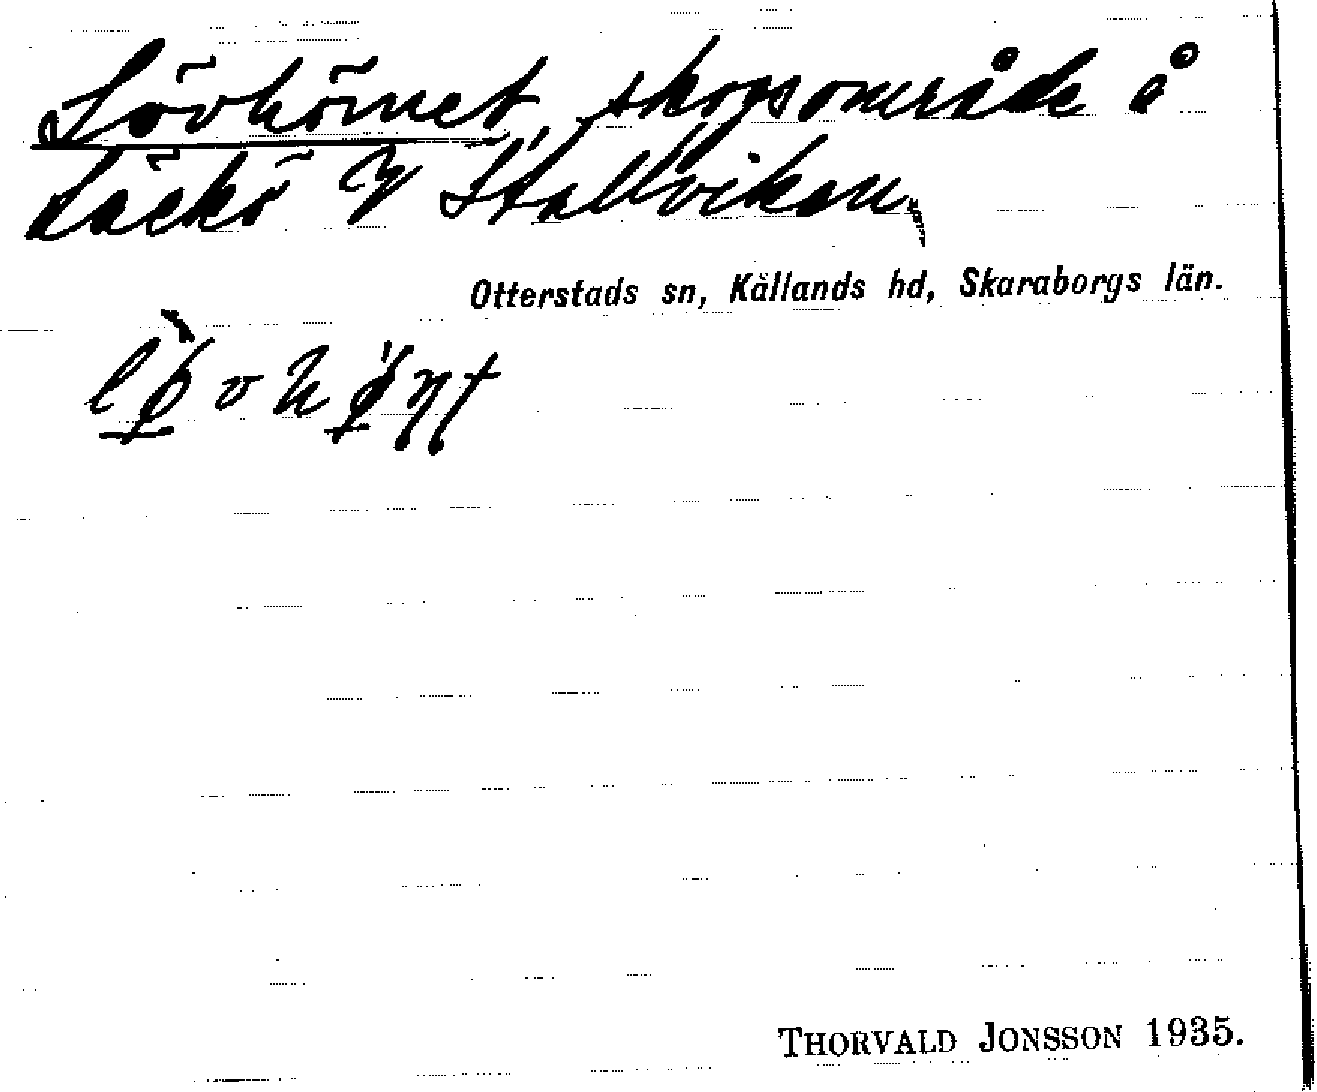 Lövhörnet, skogsområde å
Läckö V Stallviken,
Otterstads sn, Kållands hd, Skaraborgs län.
THORVALD JONSSON 1935.